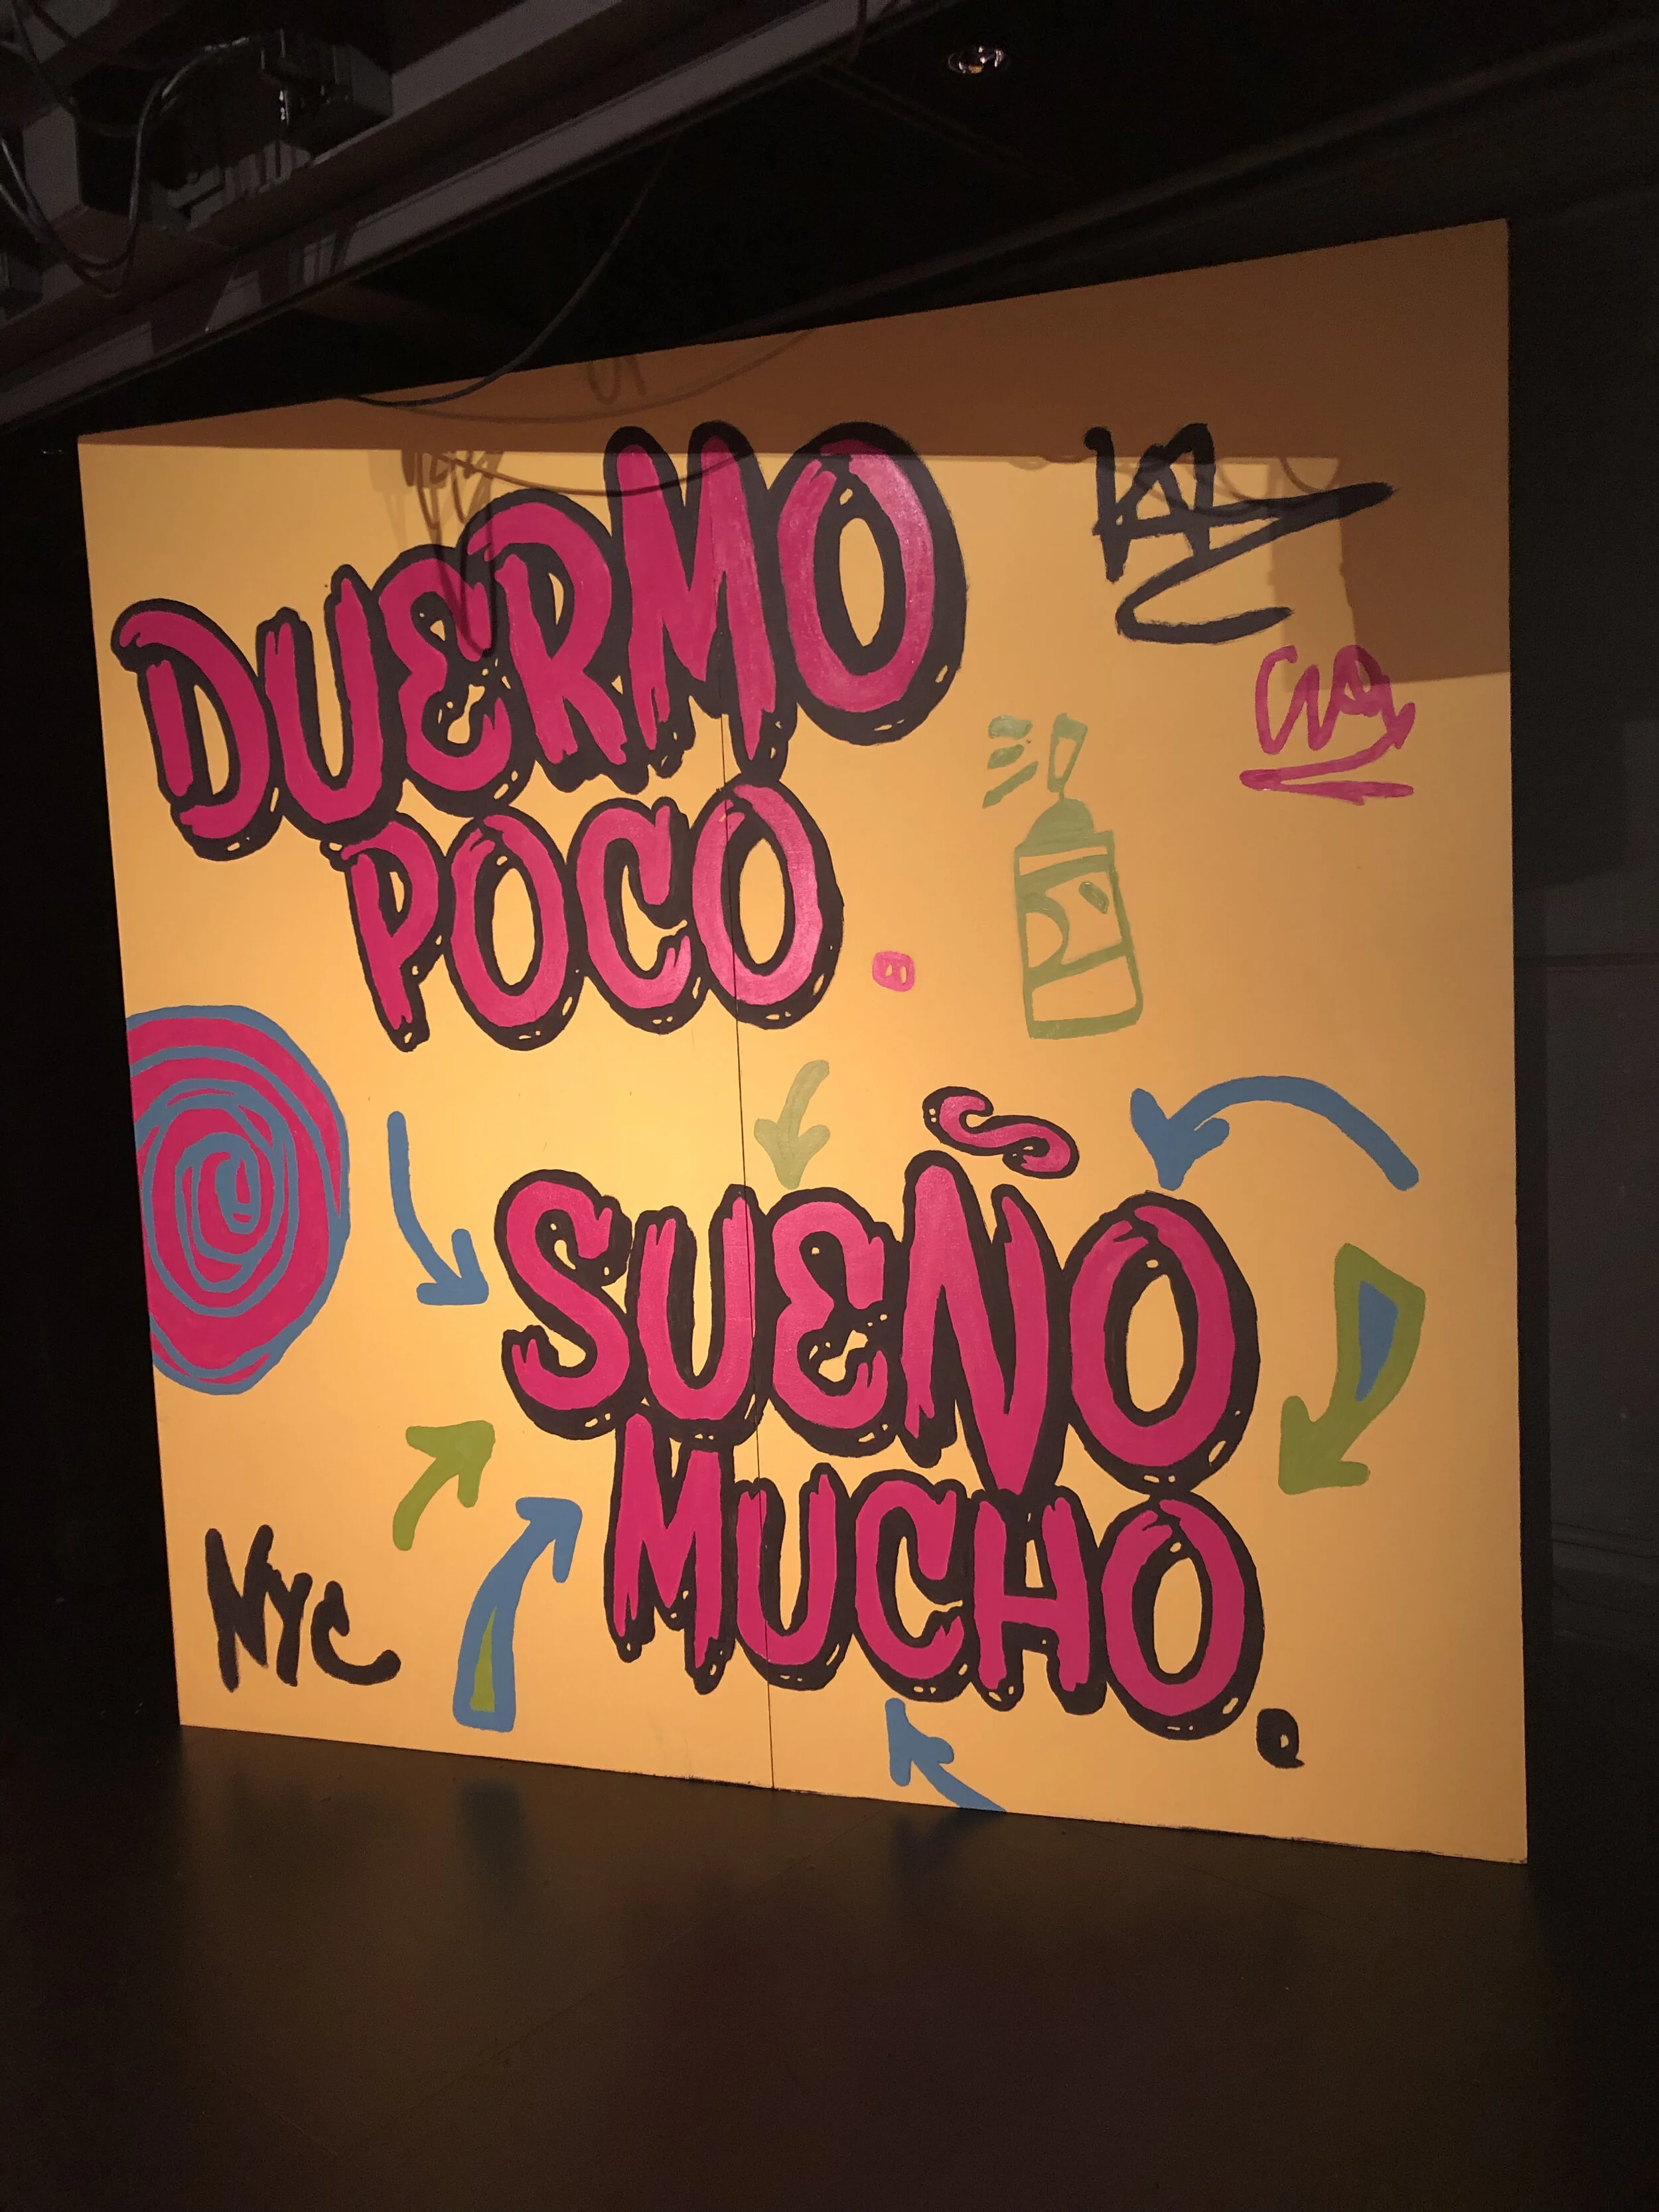 DUERMO
POCO.
SUEÑO
MUCHO.
NYC